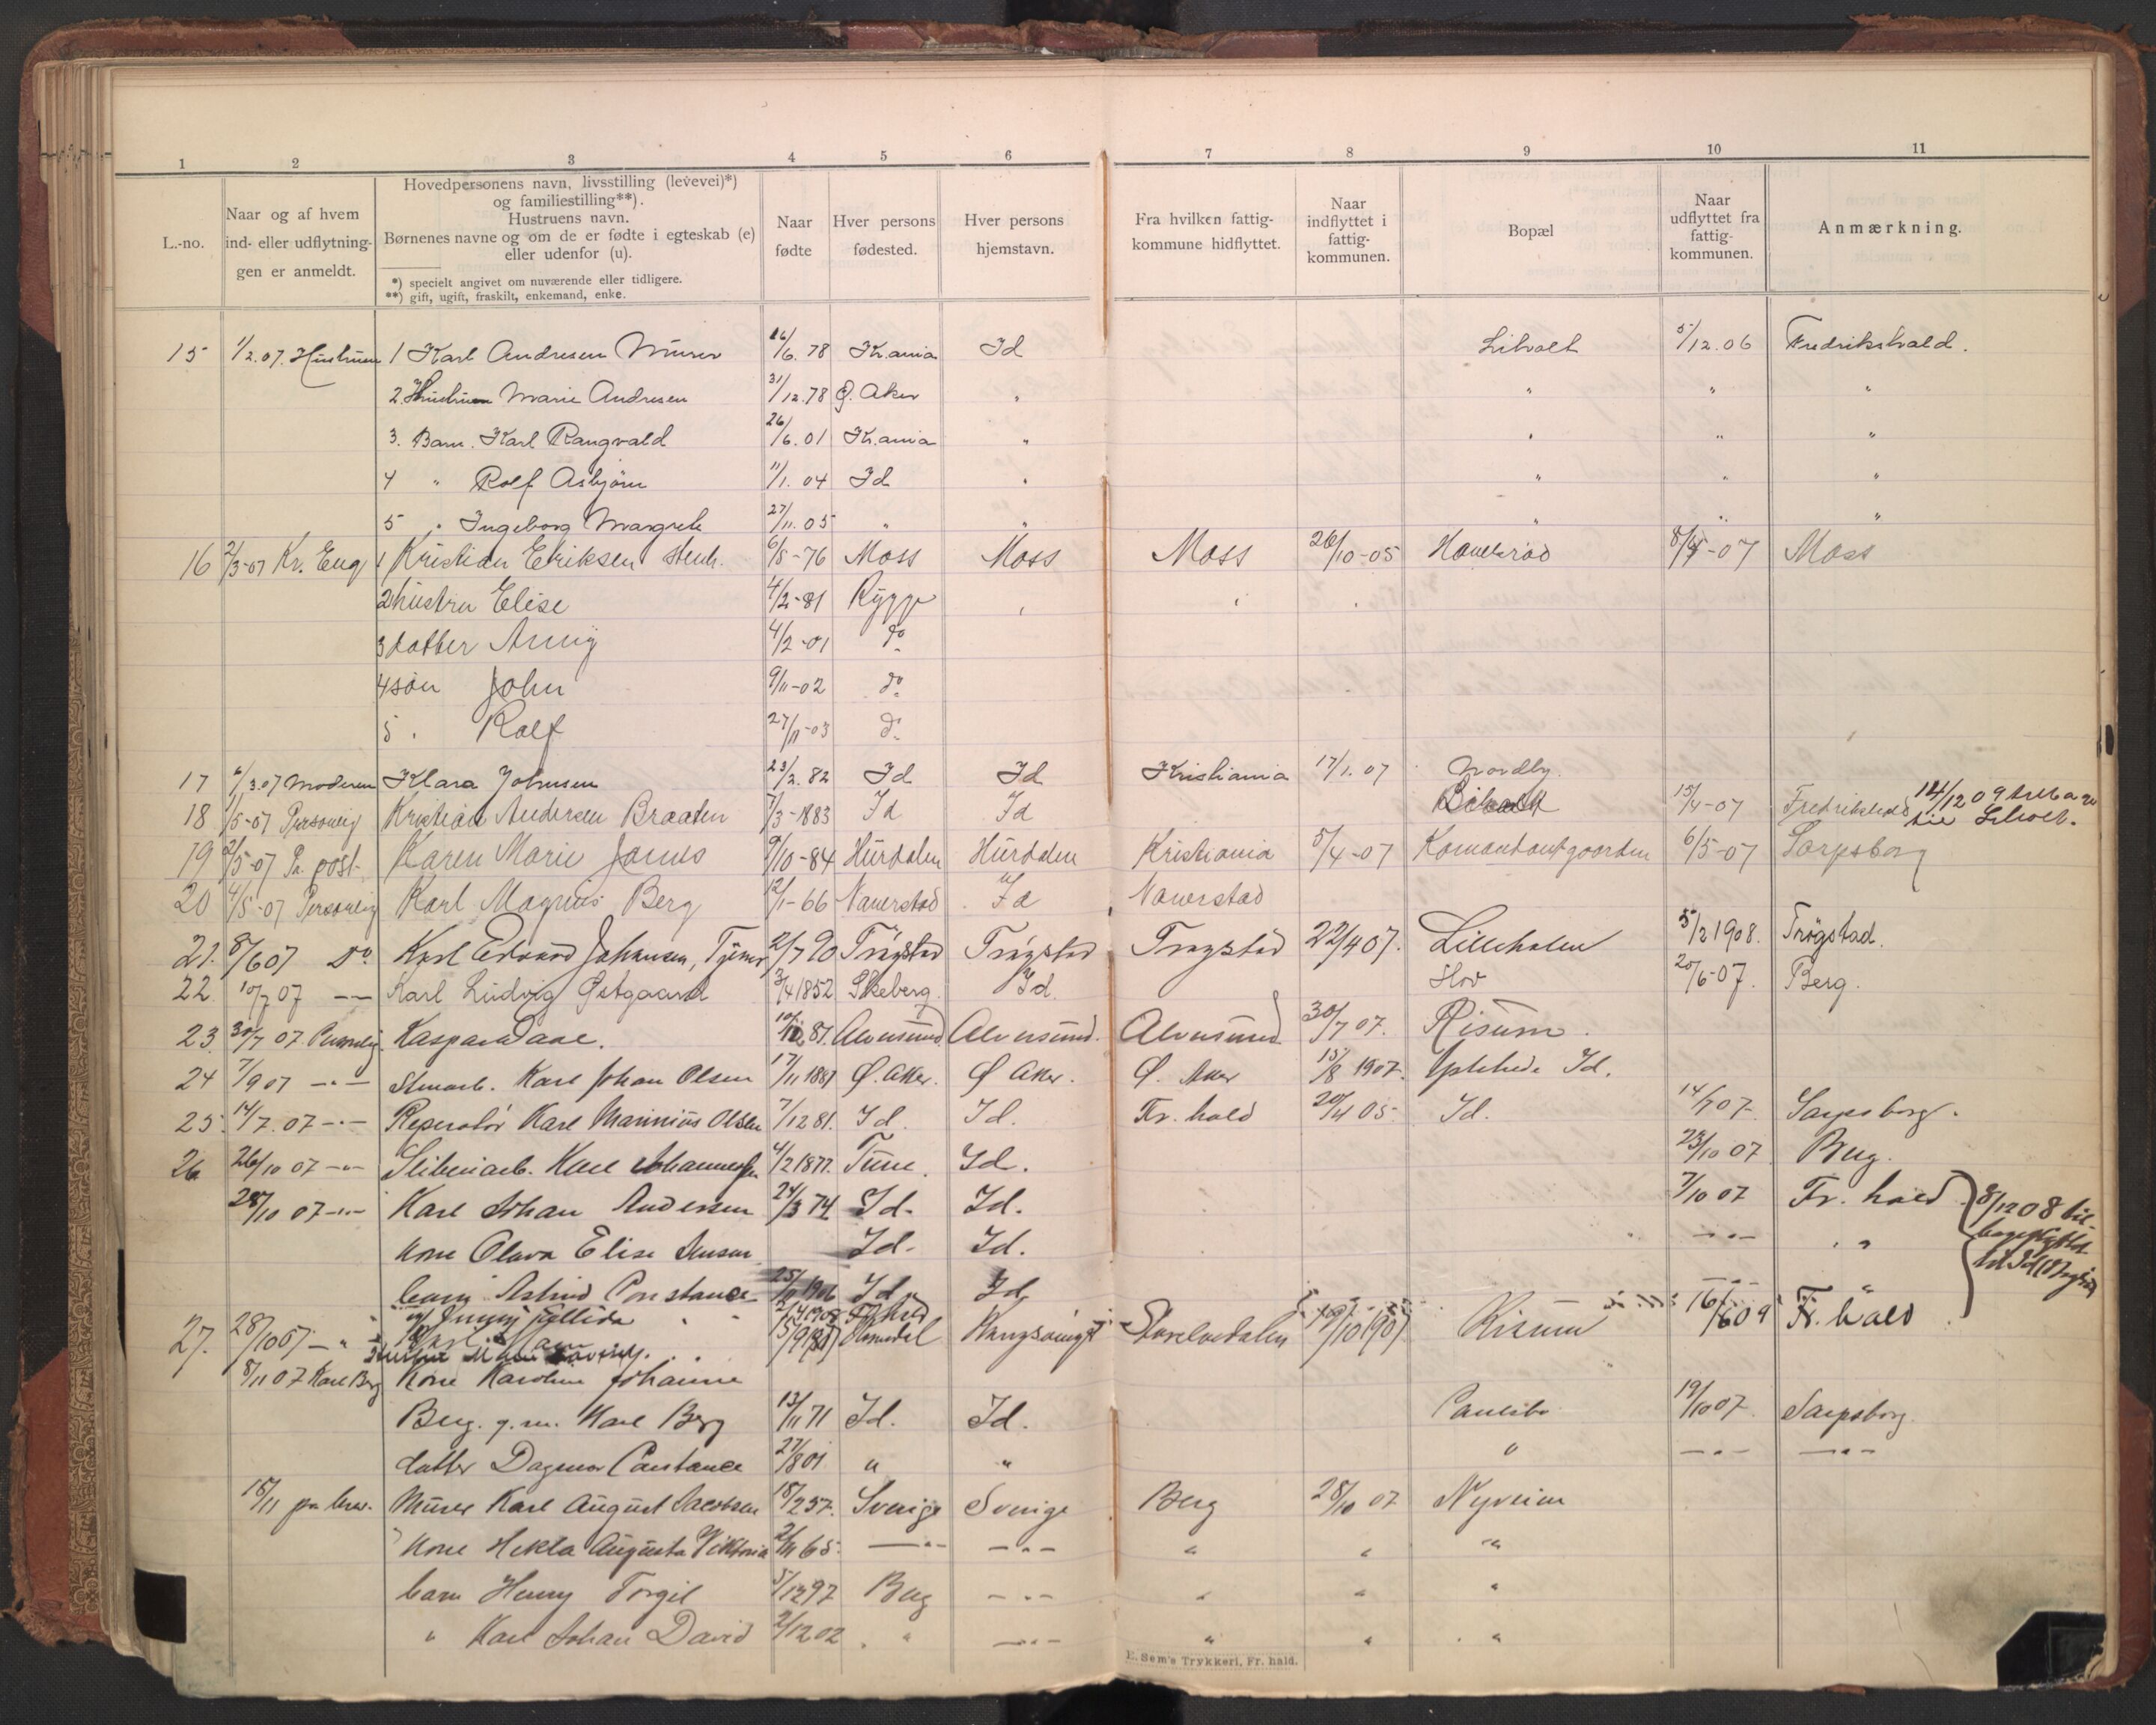 1 2 3 4 5 6 7 8 9 10 11
L.-no.
Naar og af hvem
ind- eller udflytnin-
gen er anmeldt.
Hovedpersonens navn, livsstilling (levevei)*)
og familiestilling**).
Hustruens navn.
Børnenes navne og om de er fødte i egteskab (e)
eller udenfor (u).
*) specielt angivet om nuværende eller tidligere.
**) gift, ugift, fraskilt, enkemand, enke.
Naar
fødte
Hver persons
fødested.
Hver persons
hjemstavn.
Fra hvilken fattig-
kommune hidflyttet.
Naar
indflyttet i
fattig-
kommunen.
Bopæl
Naar
udflyttet fra
fattig-
kommunen.
Anmærkning.
15 1/2.07. Hustruen 1 Karl Andresen Murer 16/6.78 Kr.ania Id Liholt 5/12.06 Fredrikshald.
2. Hustruen Marie Andresen 31/12.78 Ø. Aker " " " "
3. Barn. Karl Rangvald 26/6.01 Kr.ania " " " "
4 " Rolf Asbjørn 11/1.04 Id " " " "
5 " Ingeborg Margrete 27/11.05 " " " " "
16 2/3-07 Kr. Eng 1 Kristian Eriksen stenh. 6/8-76 Moss Moss Moss 26/10-05 -07 Moss
2 hustru Elise 4/2-81 Rygge
3 datter Anny 4/2-01 do
4 søn John 9/11-02 do
5 " Rolf 27/11-03 do
17 6/3.07 Moderen Klara Johnsen 23/2.82 Id Id Kristiania 17/1.07 Nordby.
18 1/5-07 Personlig Kristian Andersen Braaten 7/3-1883 Id Id 15/4-07 Fredrikshald 14/12 09 tilbage
til Liholt.
19 2/5-07 Pr. post- Karen Marie 9/10-84 Hurdalen Hurdalen Kristiania 5/4-07 Komandantgaarden 6/5-07 Sarpsborg
20 4/5-07 Personlig Karl Magnus Berg 12/1-66 Naverstad Id Naverstad
21. 8/6 07 Do. Karl Edvard Johansen, 2/7 90 Trøgstad Trøgstad Trøgstad 22/4 07. Lilleholen 5/2 1908. Trøgstad.
22. 10/7 07 — — Karl Ludvig Østgaard 3/4 1852 Skeberg. Id. Hov 20/6-07. Berg.
23. 30/7 07. Personlig. Kaspara 87. Alversund. Alversund. Alversund. 30/7 07. Risum.
24 7/9 07 — " — Stenarb. Karl Johan Olsen 17/11 1881 Ø. Aker. Ø Aker. Ø. Aker 15/8 1907. Id.
25. 14/7. 07 — " — Reperatør Karl Marinius Olsen 7/12 81. Id. Id. Fr. hald 20/4 05 Id. 14/7 07. Sarpsborg.
26 26/10 07 — " — Sliberiarb. Karl Johannessen 4/2 1877. Tune. Id. 23/10 07 Berg.
28/10 07 — " — Karl Johan Andersen 24/3 74 Id. Id. 7/10 07 Fr. hald. 8/12 08 til-
kone Olava Elise Jensen Id. Id. — " — " " bageflyttet
barn Astrid Constance 25/ 1906 Id Id — " — " til Id
" 2/4 1908 Fr.hald
27. 28/10 07 — " — Karl 5/9 1881 Kongsvinger Storelvedalen 10/10 1907 Risum 16/6 09 Fr. hald.
Hustru
8/11 07 Karl Berg Kone Karoline Johanne
Berg. g. m. Karl Berg 13/11 71 Id. Id. Paulsbo 19/10 07. Sarpsborg.
datter Dagmar Constance 27/8 01 " " " — " — — " —
18/11 pr brev. Murer Karl August Jacobsen 18/2 57. Sverige Sverige Berg 28/10 07 Nyveien
Kone Hekla Augusta Viktoria 2/11 65. — " — — " — " " "
barn Henry Torgil 5/12 97 Berg — " — " " "
" Karl Johan David 2/12 02 " " — " — " " "
E. Sem's Trykkeri, Fr. hald.